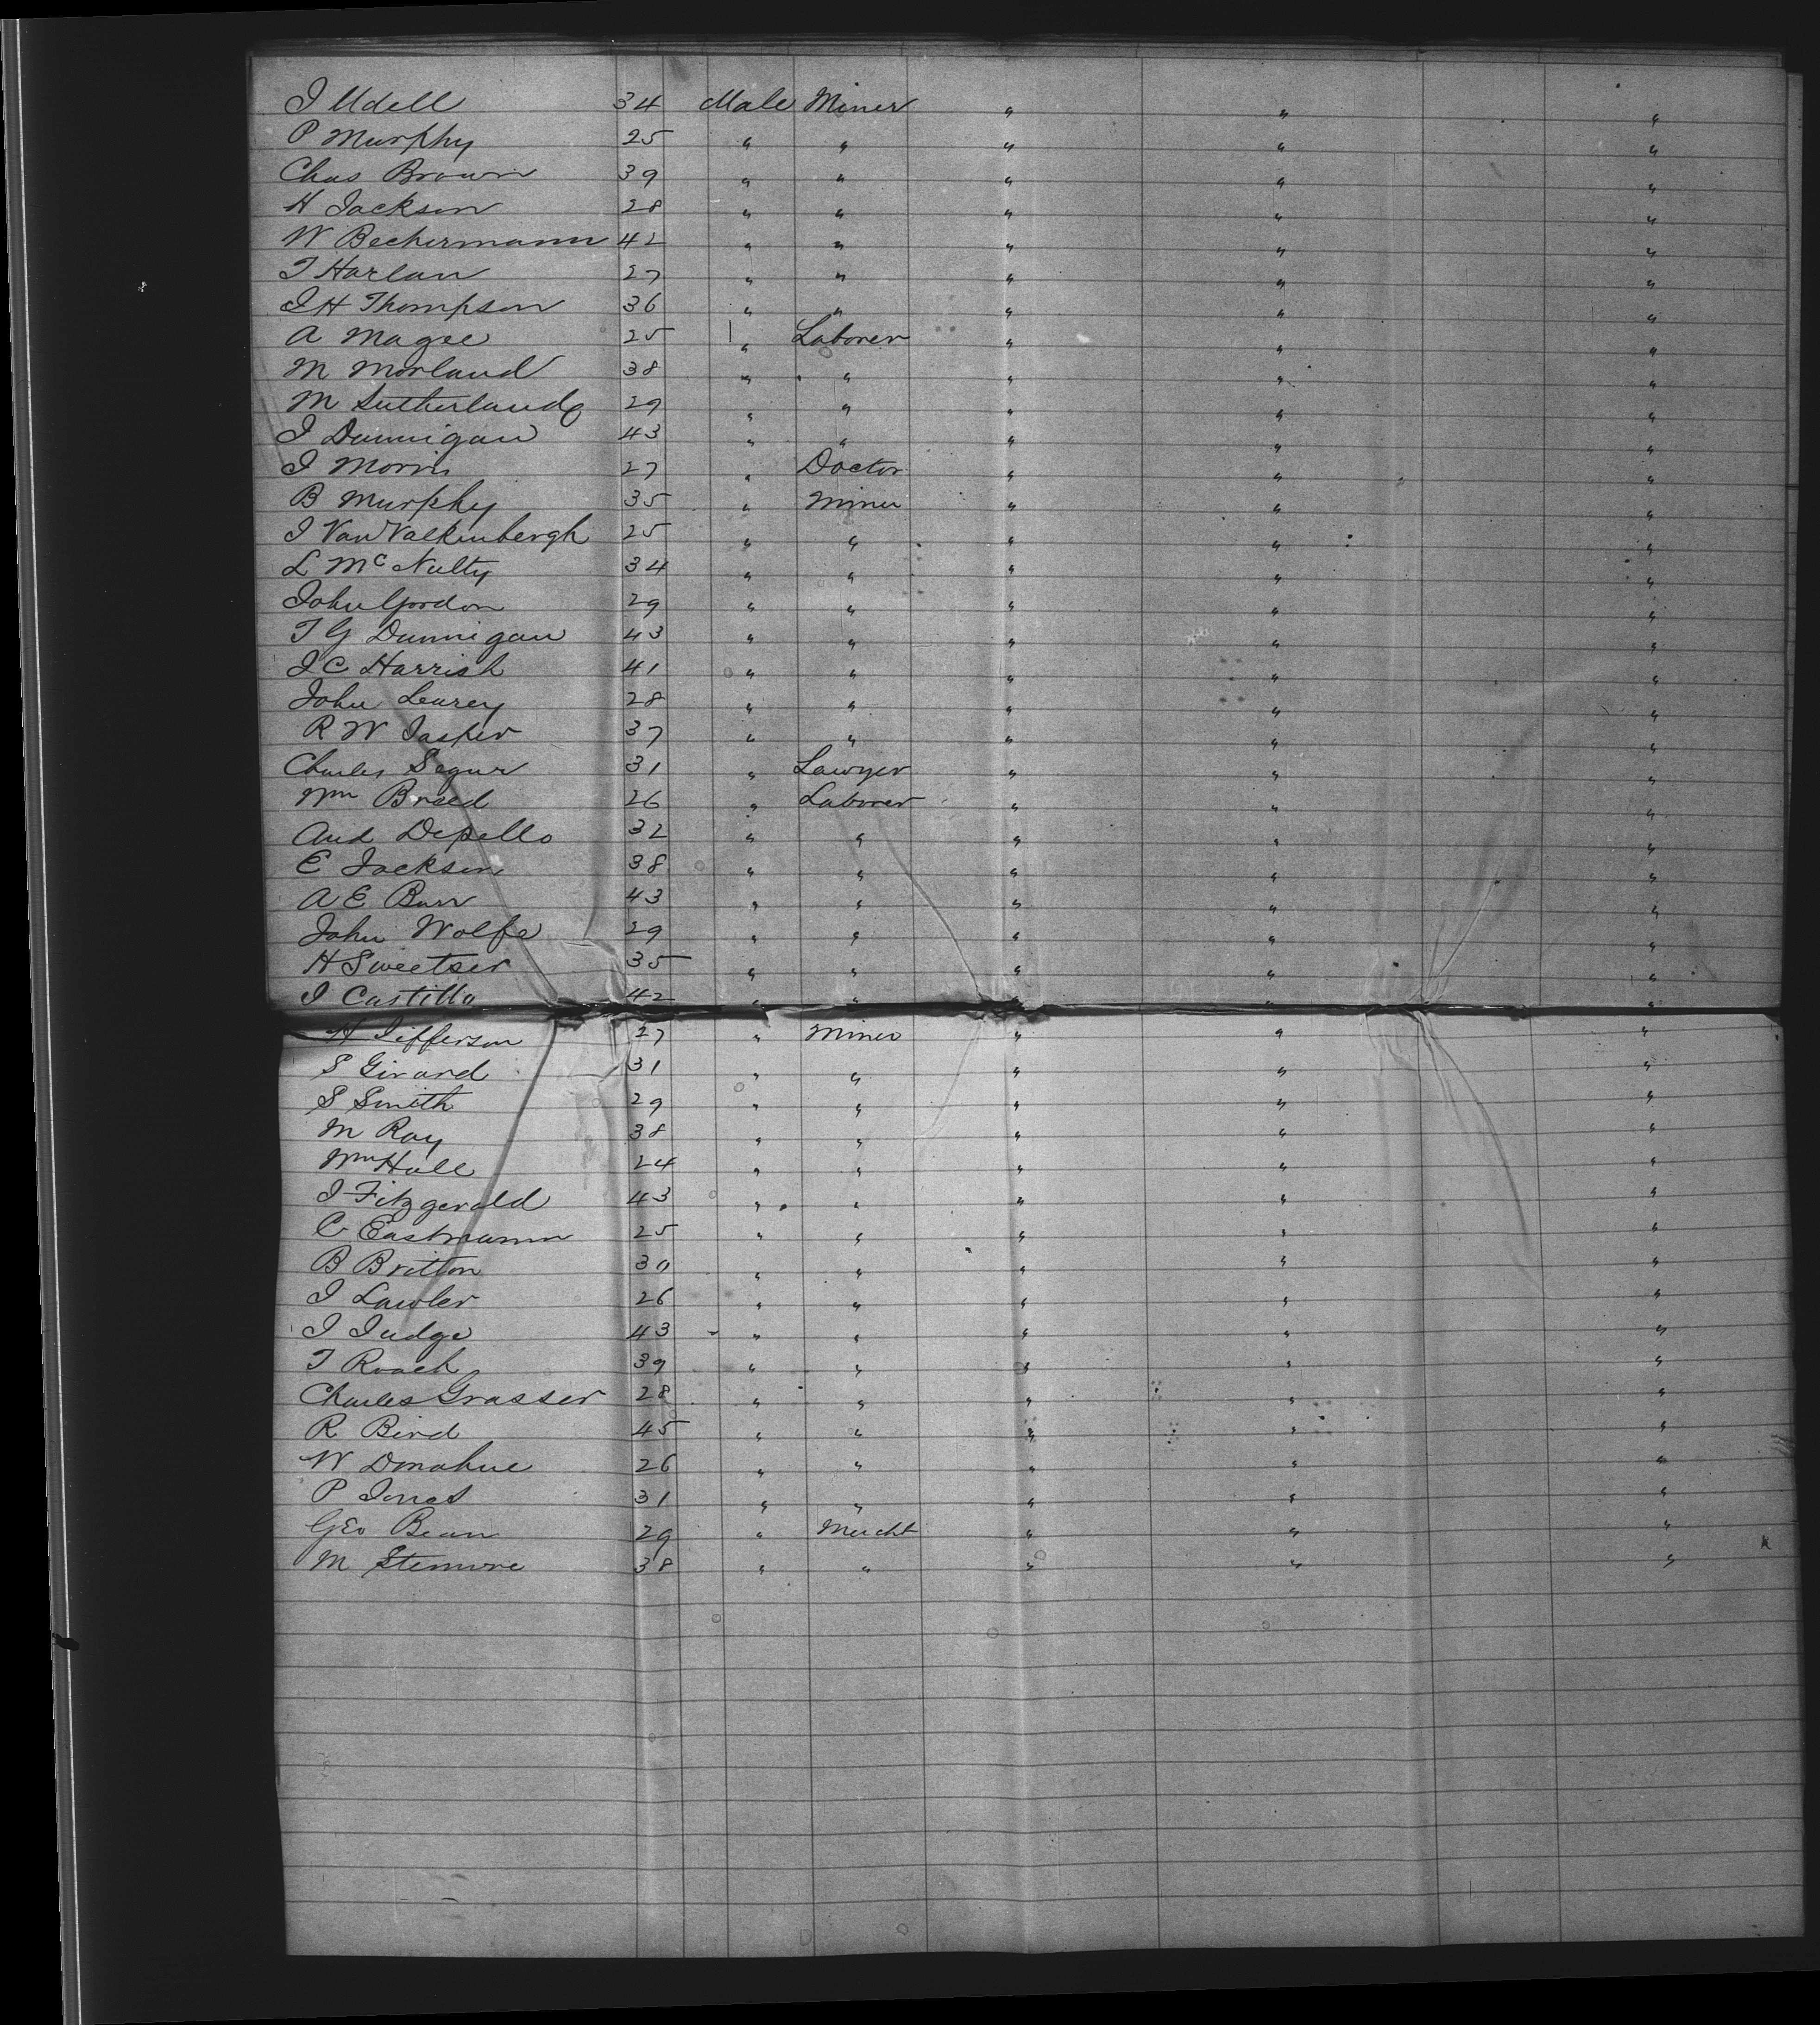 J Udell 34 Male Miner " " "
P Murphy 25 " " " " "
Chas Brown 39 " " " " "
H Jackson 28 " " " " "
W Beckermann 42 " " " " "
T Harlan 27 " " " " "
J H Thompson 36 " " " " "
A Magee 25 " Laborer " " "
M Morland 38 " " " " "
M Sutherland 29 " " " " "
J Dunnigan 43 " " " " "
J Morris 27 " Doctor " " "
B Murphy 35 " Miner " " "
J Van Valkenbergh 25 " " " " "
L McNulty 34 " " " " "
John Gordon 29 " " " " "
T G Dunnigan 43 " " " " "
J C Harrish 41 " " " " "
John Leurey 28 " " " " "
R W Jasper 37 " " " " "
Charles Segur 31 " Lawyer " " "
Wm Breed 26 " Laborer " " "
And Depello 32 " " " " "
E Jackson 38 " " " " "
A E Burr 43 " " " " "
John Wolfe 29 " " " " "
H Sweetser 35 " " " " "
J Castillo 42 " " " " "
H Jefferson 27 " Miner " " "
S Girard 31 " " " " "
S Smith 29 " " " " "
M Ray 38 " " " " "
Wm Hall 24 " " " " "
J Fitzgerald 43 " " " " "
C Eastmann 25 " " " " "
B Britton 30 " " " " "
J Lawler 26 " " " " "
J Judge 43 " " " " "
T Roach 39 " " " " "
Charles Grasser 28 " " " " "
R Bird 45 " " " " "
W Donahue 26 " " " " "
P Jones 31 " " " " "
Geo Bean 29 " Mercht " " "
M Stemore 38 " " " " "